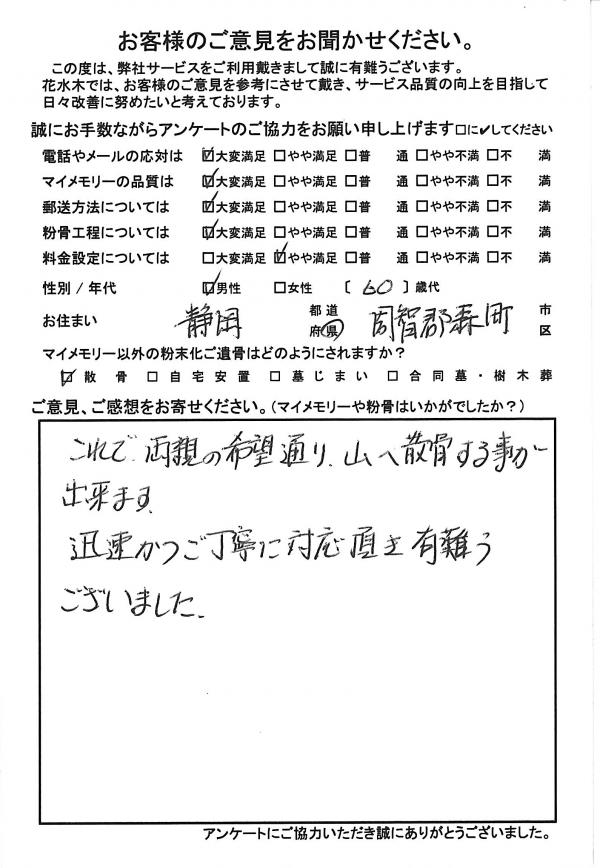 お客様のご意見をお聞かせください。
この度は、弊社サービスをご利用戴きまして誠に有難うございます。
花水木では、お客様のご意見を参考にさせて戴き、サービス品質の向上を目指して
日々改善に努めたいと考えております。
誠にお手数ながらアンケートのご協力をお願い申し上げます□に✔してください
電話やメールの応対は ☑大変満足 □やや満足 □普 通 □やや不満 □不 満
マイメモリーの品質は ☑大変満足 □やや満足 □普 通 □やや不満 □不 満
郵送方法については ☑大変満足 □やや満足 □普 通 □やや不満 □不 満
粉骨工程については ☑大変満足 □やや満足 □普 通 □やや不満 □不 満
料金設定については □大変満足 ☑やや満足 □普 通 □やや不満 □不 満
性別 / 年代 ☑男性 □女性 〔 60 〕歳代
お住まい 静岡 都 道 府 県 周智郡森町 市 区
マイメモリー以外の粉末化ご遺骨はどのようにされますか?
☑ 散 骨 □ 自 宅 安 置 □ 墓 じ ま い □ 合 同 墓 ・ 樹 木 葬
ご意見、ご感想をお寄せください。(マイメモリーや粉骨はいかがでしたか?)
これで、両親の希望通り、山へ散骨する事が
出来ます。
迅速かつご丁寧に対応頂き有難う
ございました。
アンケートにご協力いただき誠にありがとうございました。